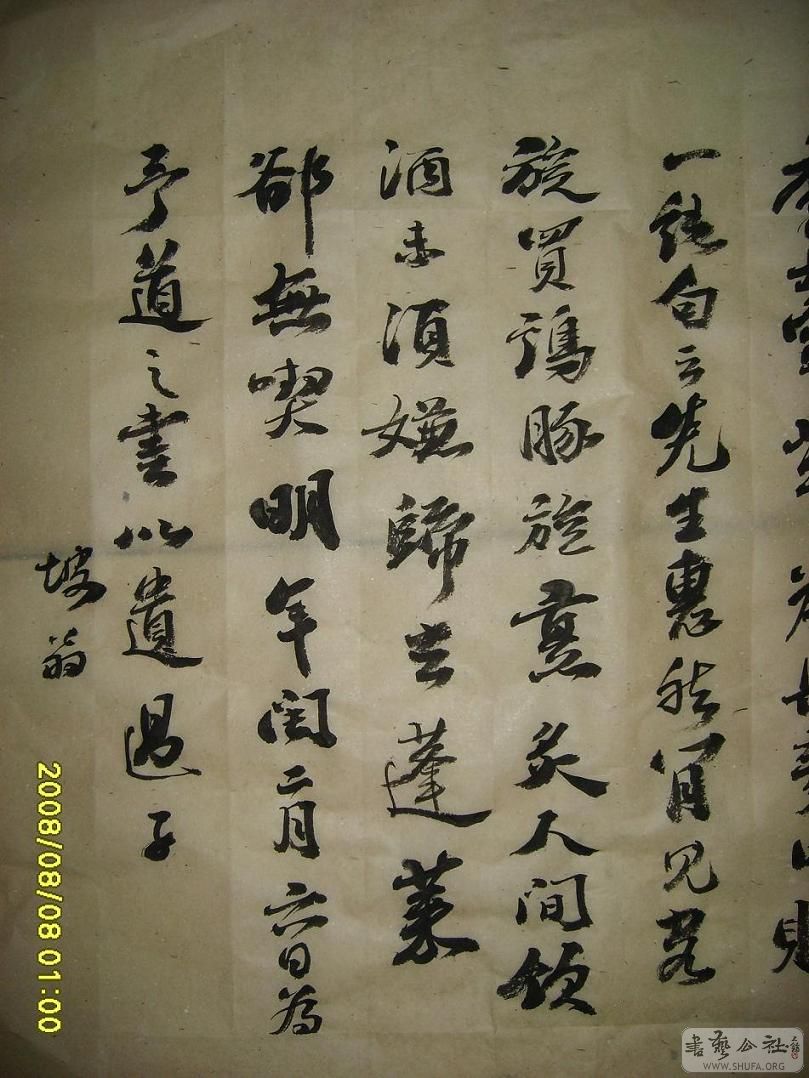 一絕句云先生惠然肯見客
旋買鷄豚旋烹炙人間飲
酒未須嫌歸去蓬萊
卻無喫明年閏二月六日為
予道之書以遺過子
坡翁
2008/08/08 01:00
書藝公社
WWW.SHUFA.ORG